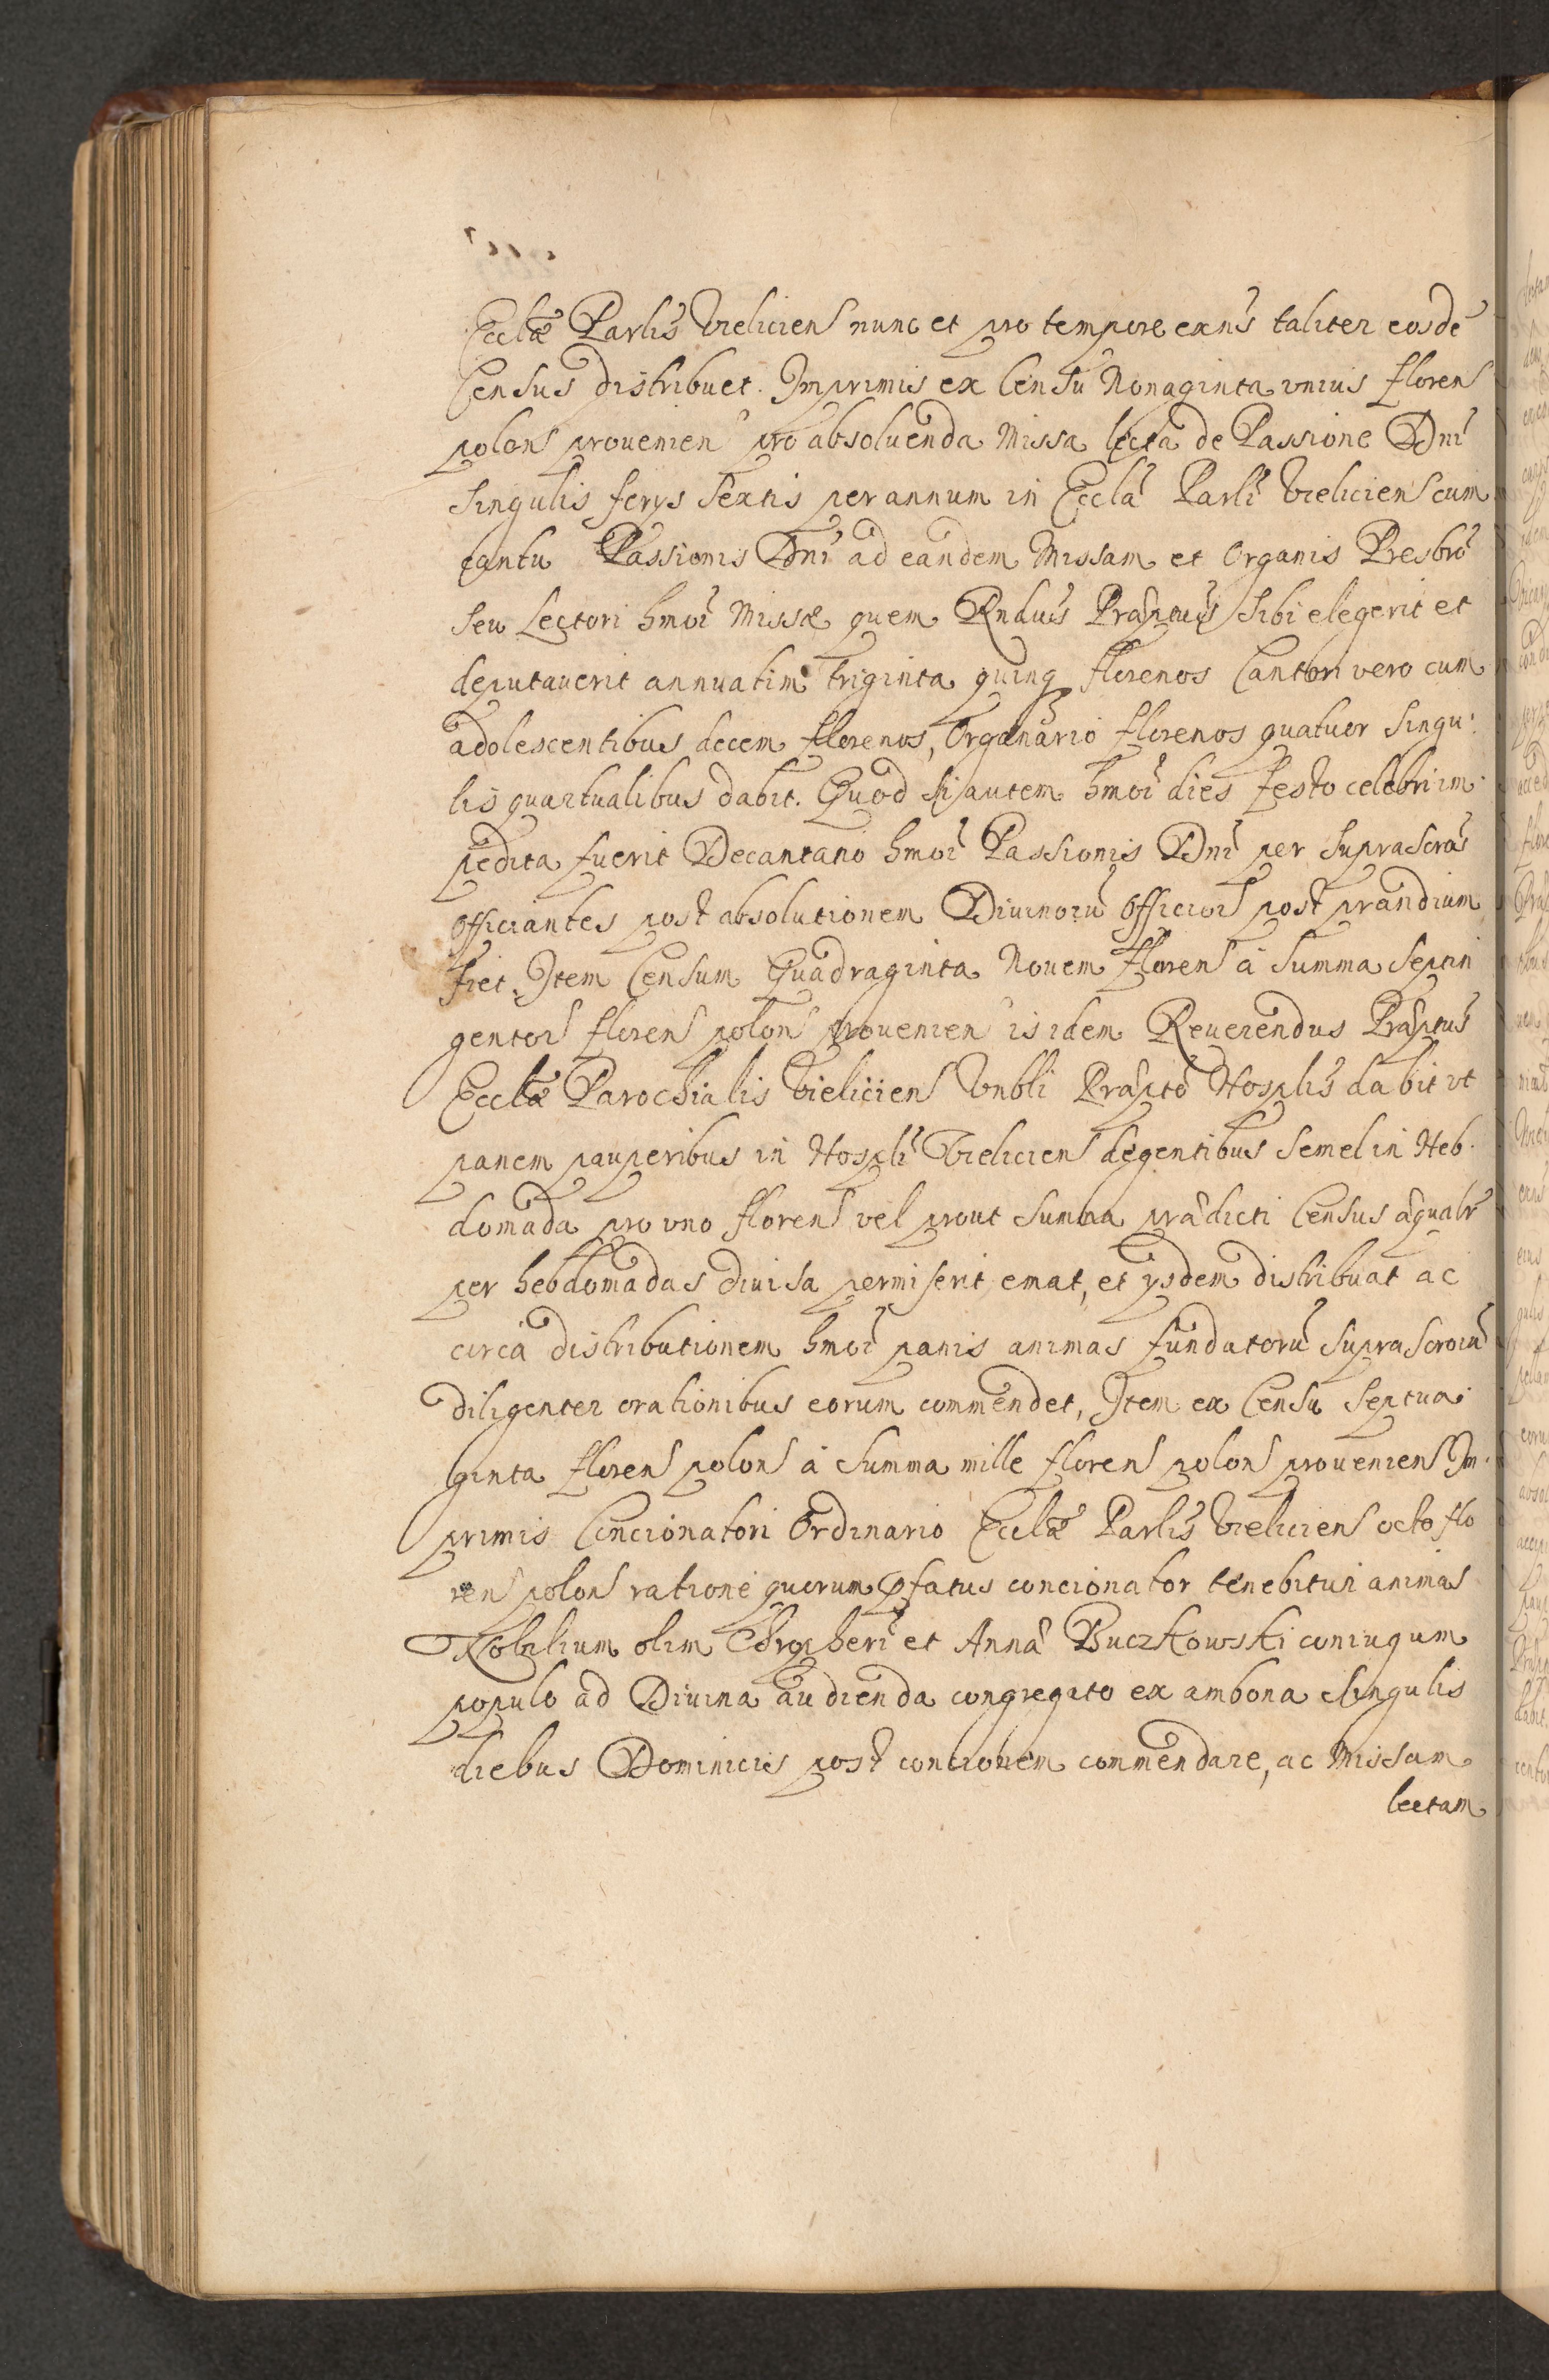 Ecclæ Parlis Vieliciens nunc et pro tempore exn̄s taliter eosdē
Census distribuet. Imprimis ex Censu Nonaginta unius floren
polon prouenien pro absoluenda Missa lecta de Passione Dnī
singulis ferijs sextis per annum in Ecclā Parlī Vieliciens cum
cantu Passionis Dnī ad eandem Missam et Organis Presbrō
seu Lectori hmōi Missæ quem Rndūs Præptūs sibi elegerit et
deputauerit annuatim triginta quinq florenos Cantori vero cum
adolescentibus decem florenos, Organario florenos quatuor singu:
lis quartualibus dabit. Quod si autem hmōi dies festo celebri im:
pedita fuerit Decantatio hmōi Passionis Dnī per suprascrōs
officiantes post absolutionem Diuinorū Officior post prandium
fiet. Item Censum Quadraginta Nouem Floren à summa septin
gentor floren polon prouenien is idem Reuerendus Præptūs
Ecclæ Parochialis Vieliciens Vnbli Præptō Hosplīs dabit vt
panem pauperibus in Hosplī Vieliciens degentibus semel in Heb:
domada pro vno floren vel prout summa prædicti Census æqualr̄
per hebdomadas diuisa permiserit, emat, et ysdem distribuat ac
circa distributionem hmōi panis animas fundatorū suprascrorū
diligenter orationibus eorum commendet, Item ex Censu Septua:
ginta floren polon à summa mille floren polon prouenien Im:
primis Concionatori Ordinario Ecclæ Parlīs Vieliciens octo flo
ren polon ratione quorum pfatus concionator tenebitur animas
Nobilium olim Chrypherī et Annæ Buczkowski coniugum
populo ad Diuina audienda congregato ex ambona singulis
diebus Dominicis post concionem commendare, ac Missam
lectam